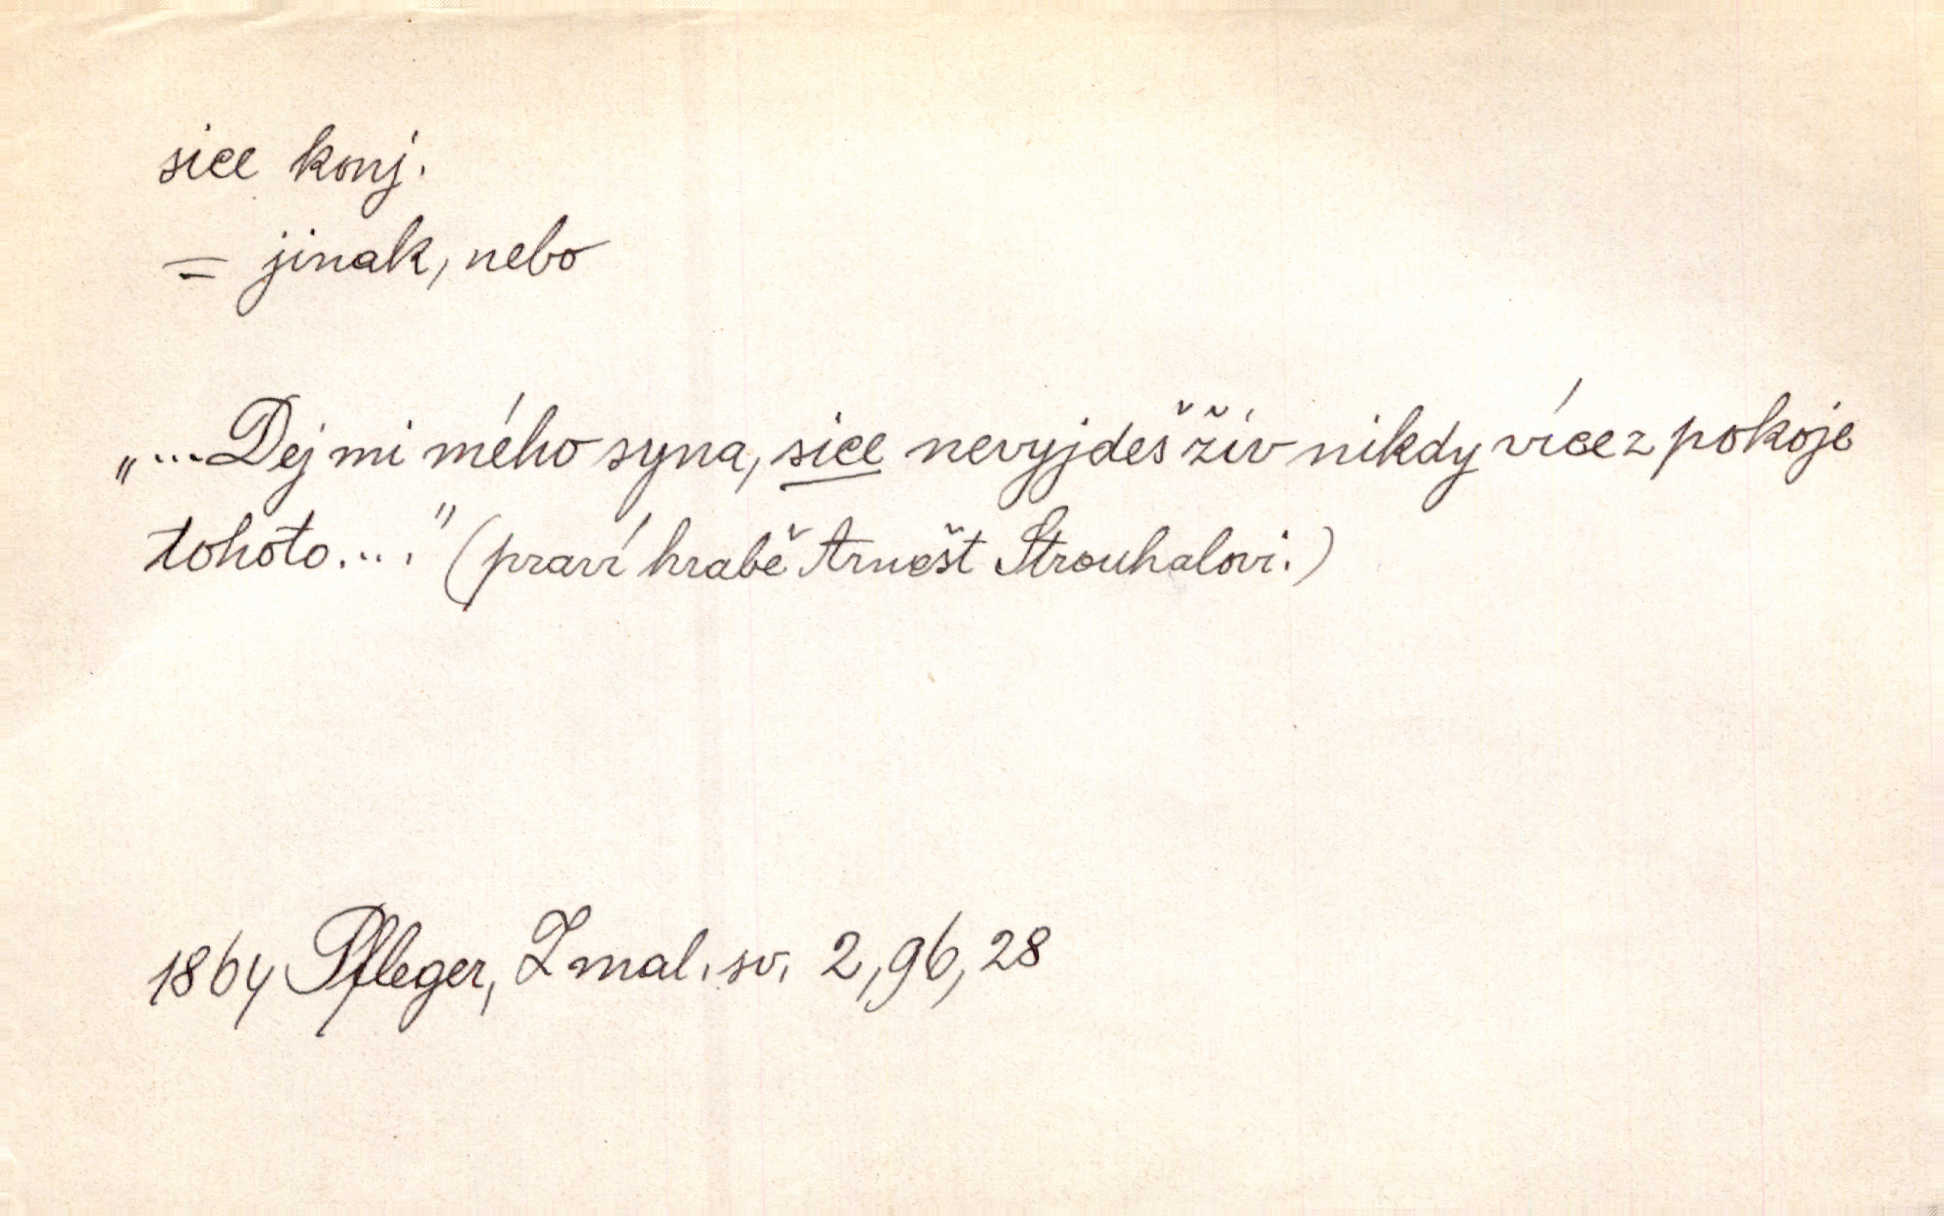 sice konj.
= jinak, nebo
„...Dej mi mého syna, sice nevyjdeš živ nikdy více z pokoje
tohoto...." (praví hrabě Arnešt Strouhalovi.)
1864 Pfleger, Z mal. sv. 2, 96, 28